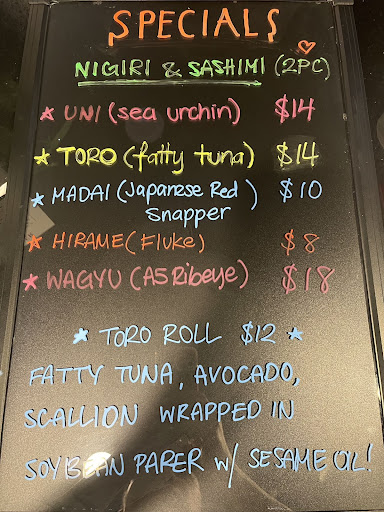 SPECIALS
NIGIRI & SASHIMI (2PC)
★ UNI (sea urchin) $14
★ TORO (fatty tuna) $14
★ MADAI (Japanese Red Snapper) $10
★ HIRAME (Fluke) $8
★ WAGYU (A5 Ribeye) $18
★ TORO ROLL $12 ★
FATTY TUNA, AVOCADO,
SCALLION WRAPPED IN
SOYBEAN PAPER w/ SESAME OIL!